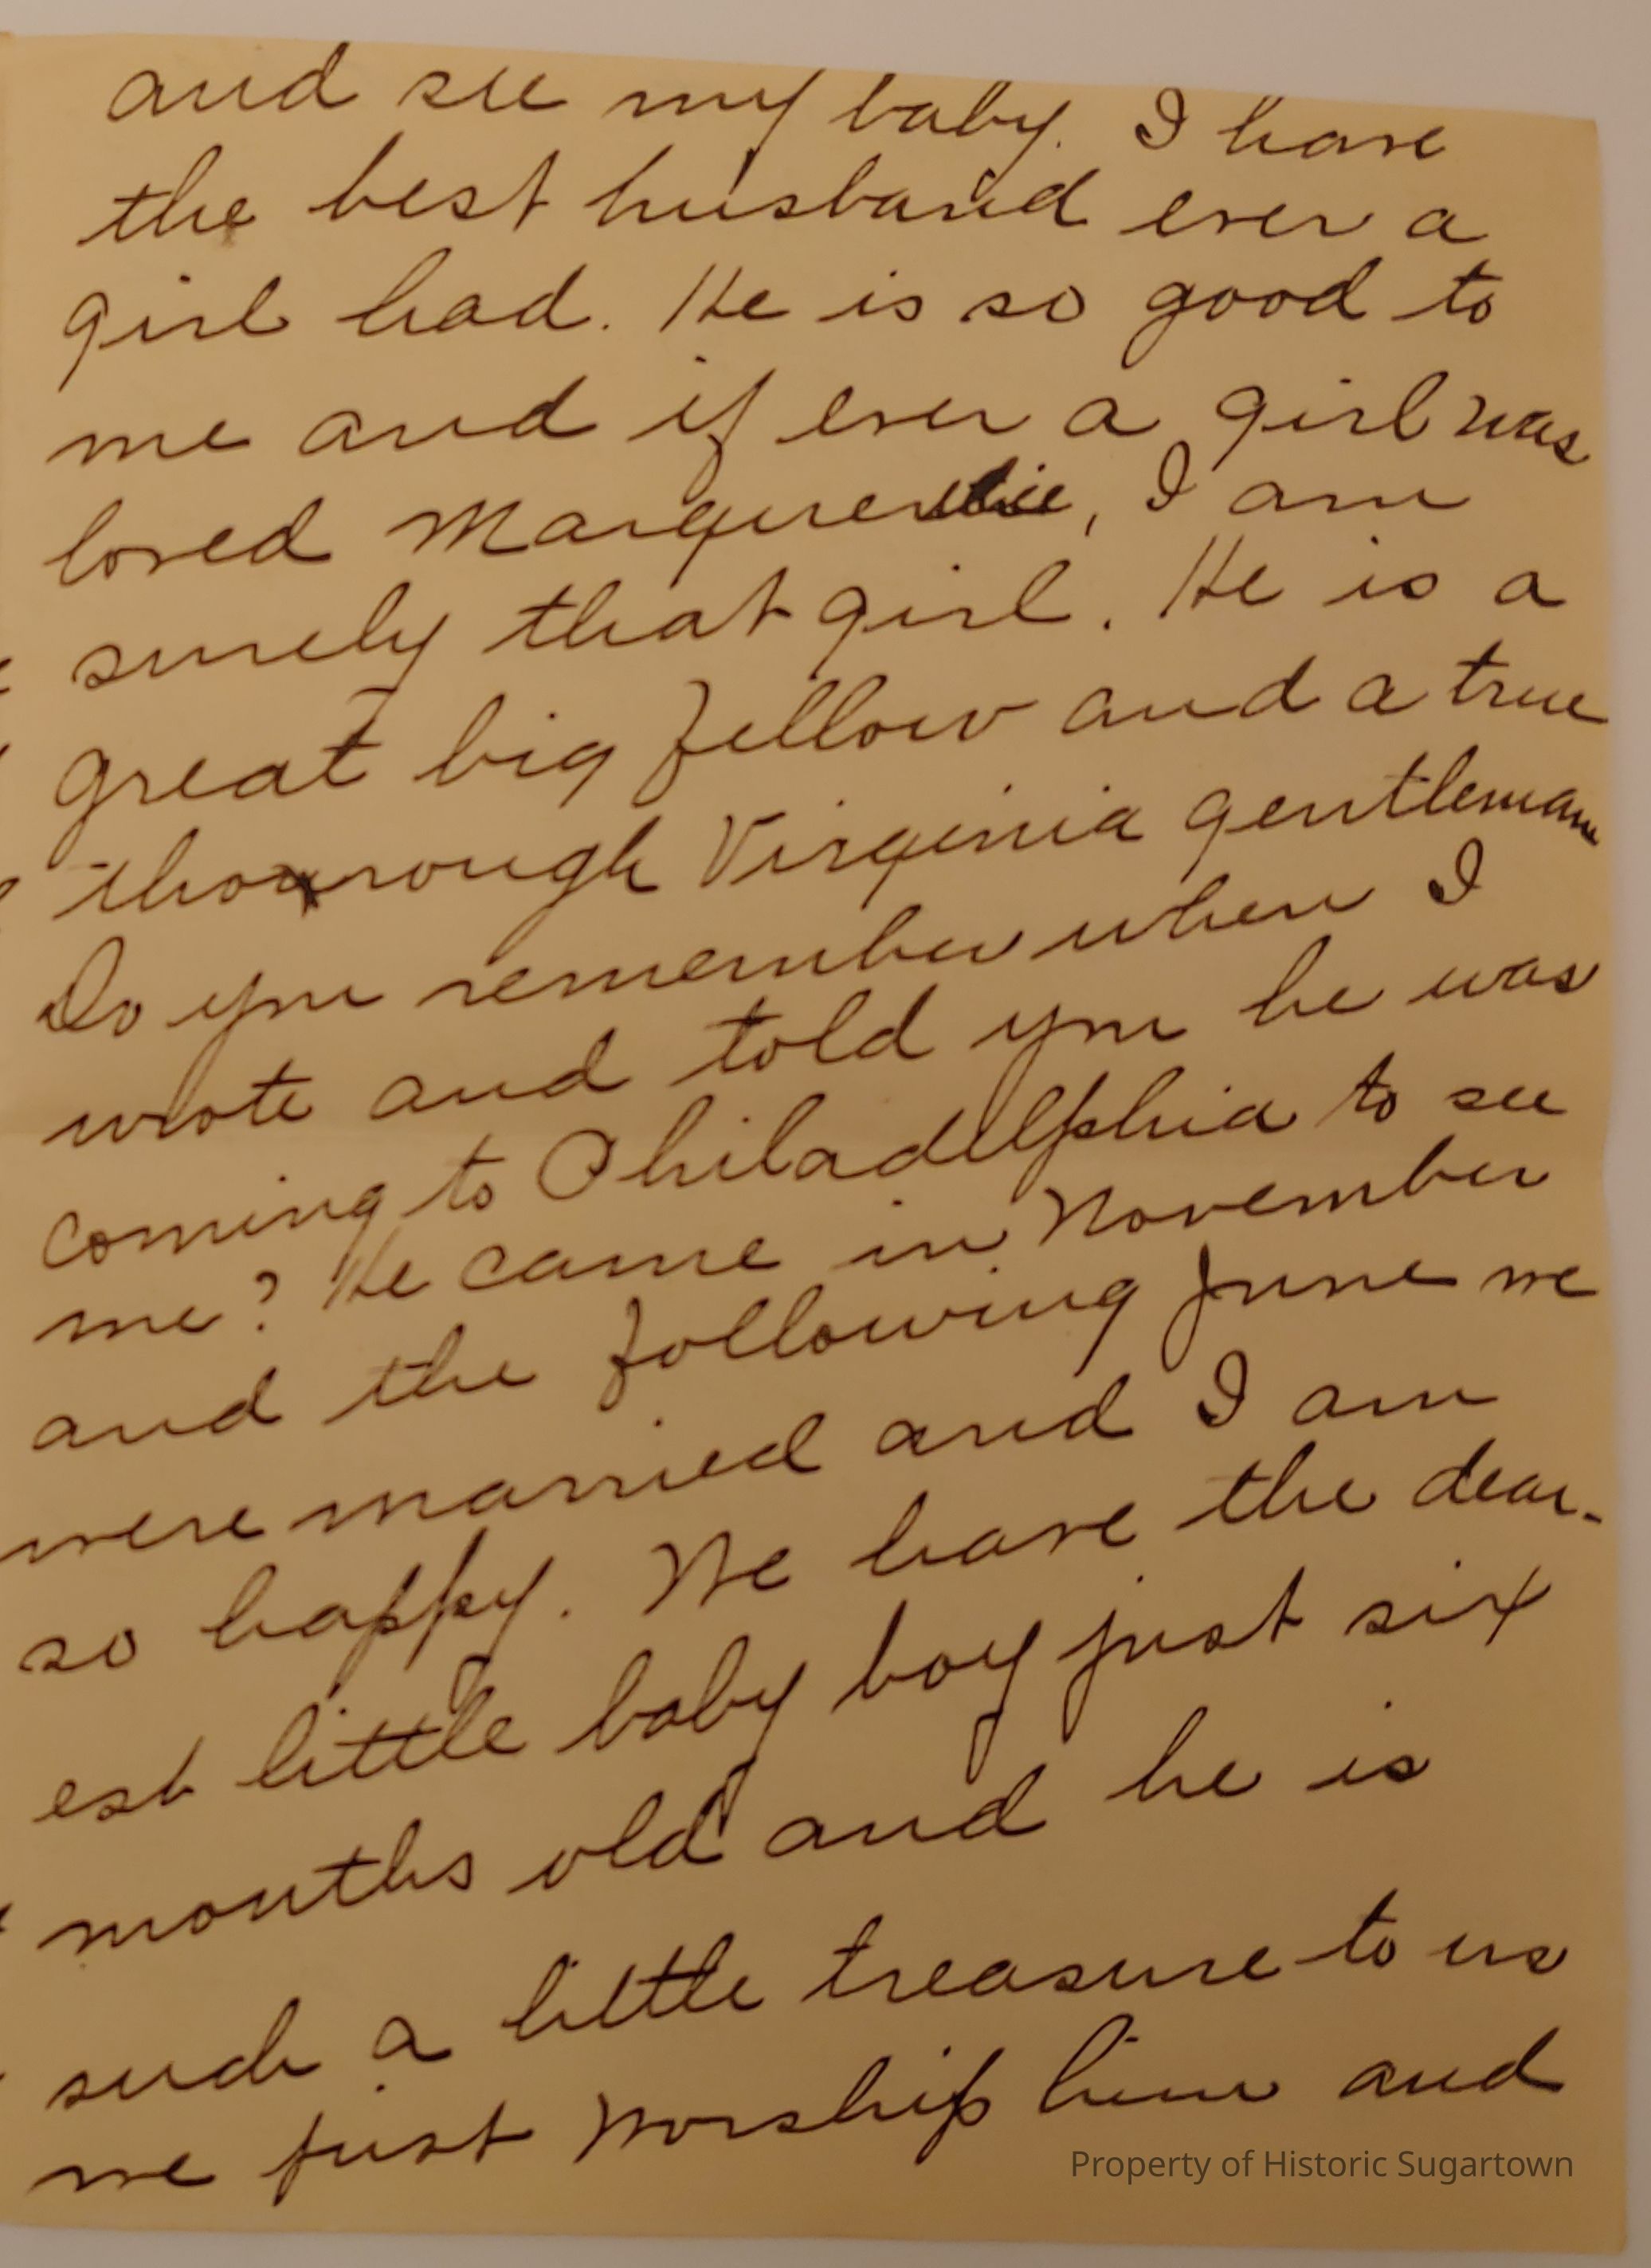 and see my baby. I have
the best husband ever a
girl had. He is so good to
me and if ever a girl was
loved I am
surely that girl. He is a
great big fellow and a true
thorough Virginia gentleman
Do you remember when I
wrote and told you he was
coming to Philadelphia to see
me? He came in November
and the following June we
were married and I am
so happy. We have the dear-
est little baby boy just six
months old and he is
such a little treasure to us
we just worship him and
Property of Historic Sugartown